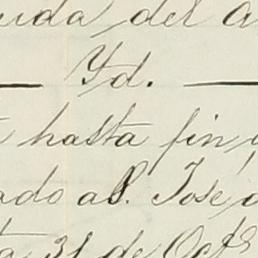 uida del a
Yd.
hasta fin
ado a S. José
31 de Oct